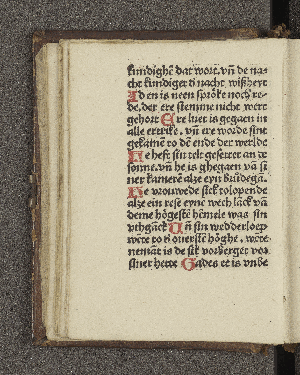 kundighē dat wort. vn̄ de nas
cht kundiget d̄ nacht wißheyt
Id en is neen sproke noch re-
de, der ere stemme nicht wert
gehort Ere luet is gegaen in
alle ertrike, vn̄ ere worde sint
gekamē to dē ende der werlde
He heft sin telt gesettet an de
sonne. vn̄ he is ghegaen vā si
ner kamerē alze eyn brudegā.
He vrouwede sick to lopende
alze ein rese eyne wech lāck vā
deme hogestē hēmele was sin
vthgāck Vn̄ sin wedderloep
wēte to d̄ ouerstē hoghe, wēte
nemāt is de sik vorberget vor
siner hette Gades et is vnbe